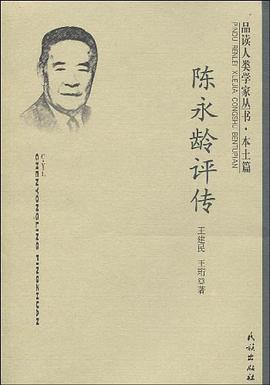 品读人类学家丛书·本土篇
PINDU RENLEI XUEJIA CONGSHU BENTUPIAN
陈永龄评传
王建民 王珩 著
CHENYONGLING PINGZHUAN
民族出版社